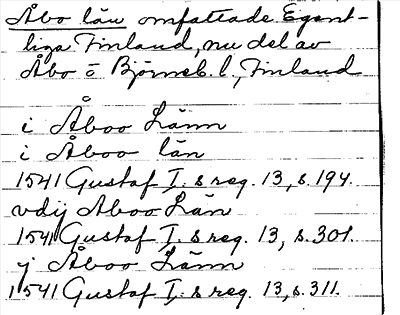 Åbo län omfattade Egent-
liga Finland, nu del av
Åbo o Björneb. l., Finland
i Åboo Länn
i Åboo län
1541 Gustaf I:s reg. 13, s. 194.
vdij Aboo Län
1541 Gustaf I:s reg. 13, s. 301.
j Åboo Länn
1541 Gustaf I:s reg. 13, s. 311.